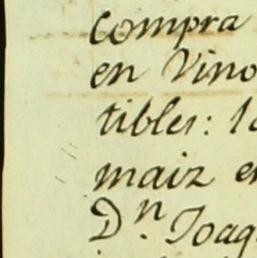 compra
en Vino
tibles: la
maiz en
Dn. Joaq